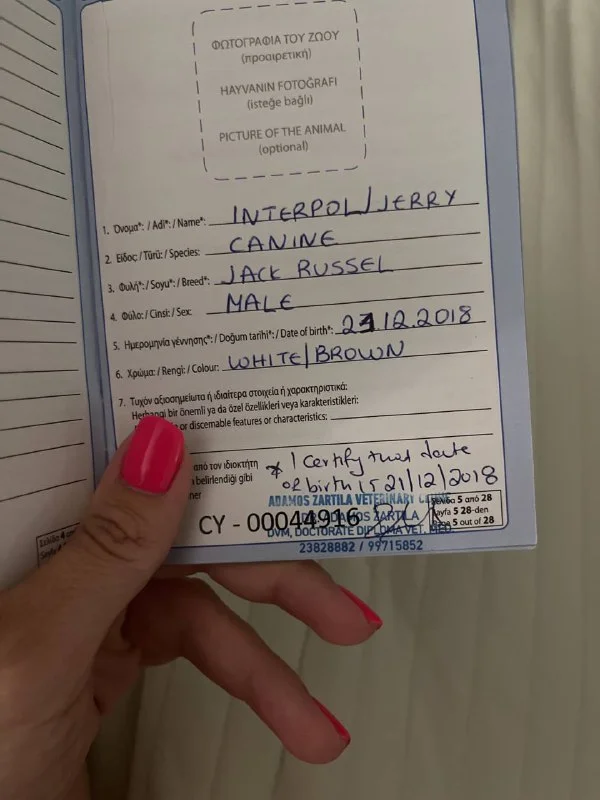 ΦΩΤΟΓΡΑΦΙΑ ΤΟΥ ΖΩΟΥ
(προαιρετική)
HAYVANIN FOTOĞRAFI
(isteğe bağlı)
PICTURE OF THE ANIMAL
(optional)
1. Όνομα*: / Adi*: / Name*: INTERPOL/JERRY
2. Είδος / Türü: / Species: CANINE
3. Φυλή*: / Soyu*: / Breed*: JACK RUSSEL
4. Φύλο: / Cinsi: / Sex: MALE
5. Ημερομηνία γέννησης*: / Doğum tarihi*: / Date of birth*: 21.12.2018
6. Χρώμα: / Rengi: / Colour: WHITE/BROWN
7. Τυχόν αξιοσημείωτα ή ιδιαίτερα στοιχεία ή χαρακτηριστικά:
Herhangi bir önemli ya da özel özellikleri veya karakteristikleri:
or discernable features or characteristics:
από τον ιδιοκτήτη
belirlendiği gibi
* I Certify that date
of birth is 21/12/2018
ADAMOS ZARTILA VETERINARY
CY - 00044916
ADAMOS ZARTILA
DVM, DOCTORATE DIPLOMA VET. MED.
23828882 / 99715852
Σελίδα 5 από 28
Sayfa 5 28-den
5 out of 28
Σελίδα 4